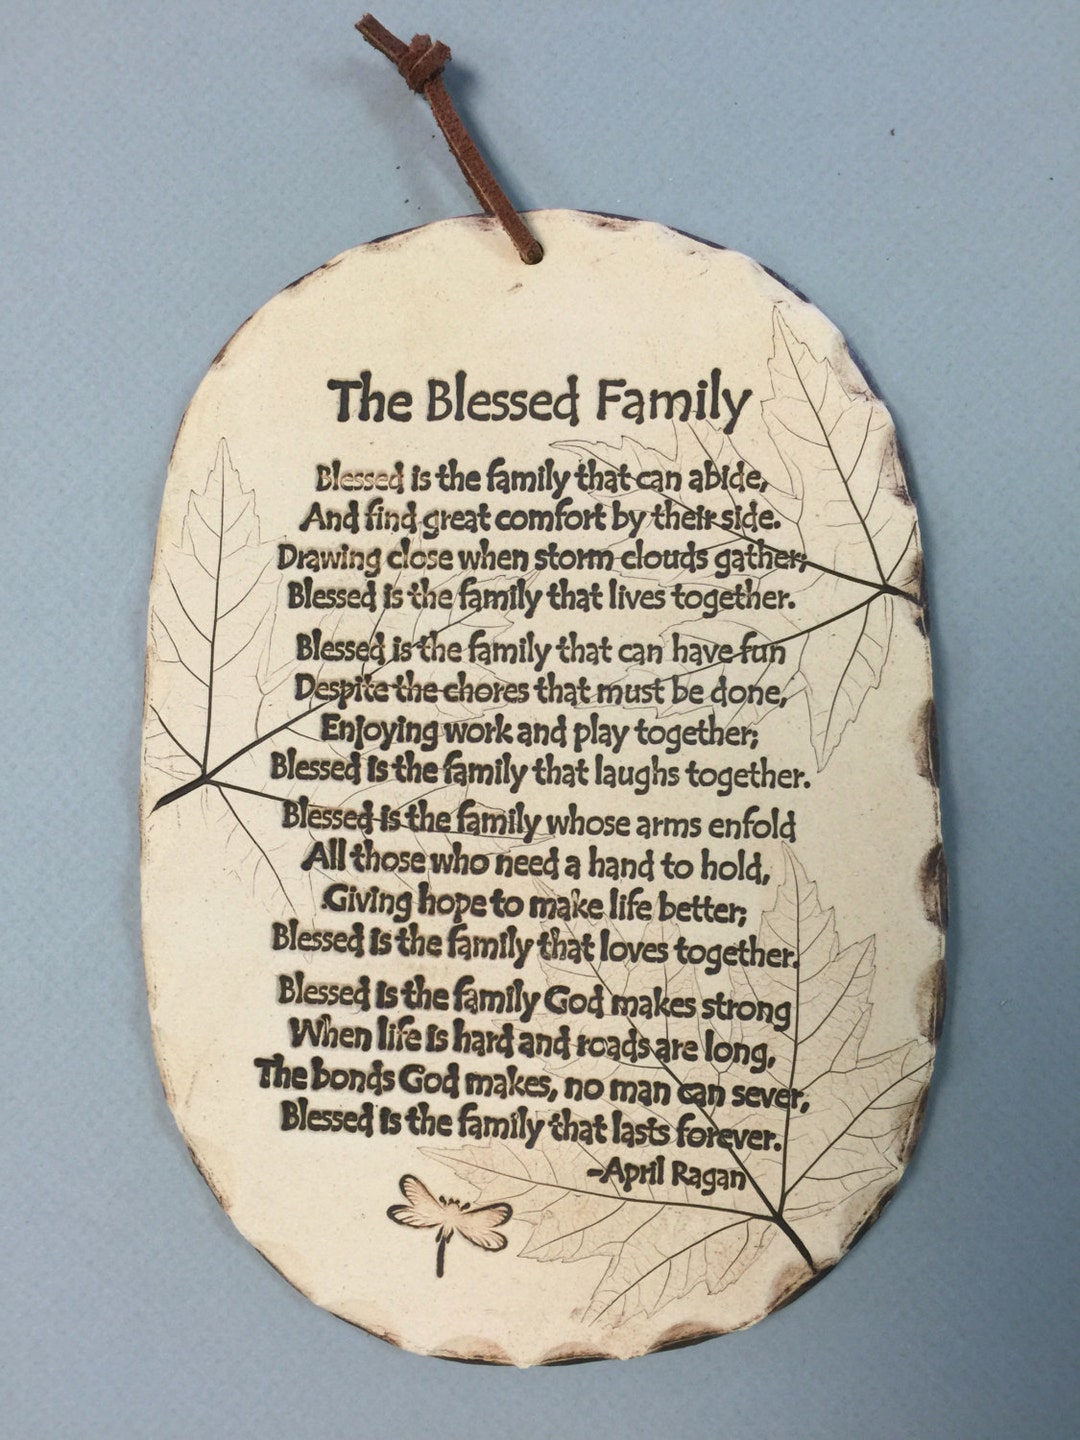 The Blessed Family
Blessed is the family that can abide,
And find great comfort by their side.
Drawing close when storm clouds gather;
Blessed is the family that lives together.
Blessed is the family that can have fun
Despite the chores that must be done,
Enjoying work and play together;
Blessed is the family that laughs together.
Blessed is the family whose arms enfold
All those who need a hand to hold,
Giving hope to make life better;
Blessed is the family that loves together.
Blessed is the family God makes strong
When life is hard and roads are long,
The bonds God makes, no man can sever,
Blessed is the family that lasts forever.
-April Ragan